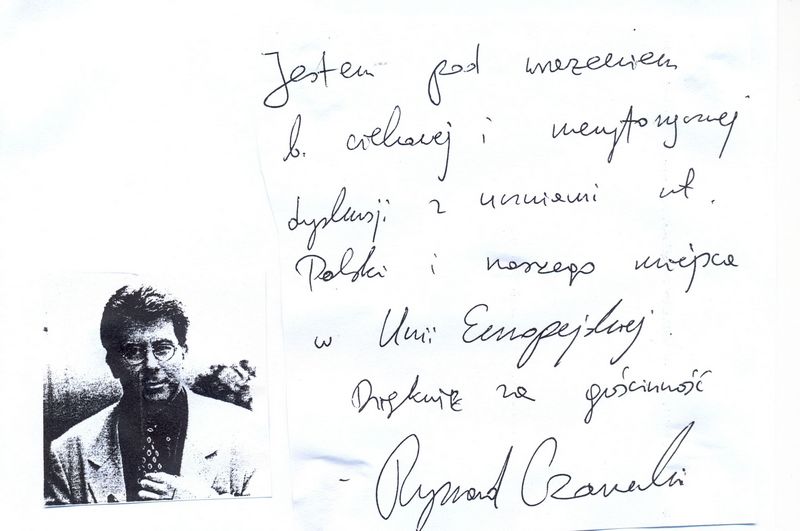 Jestem pod wrażeniem
b. ciekawej i merytorycznej
dyskusji z uczniami nt.
Polski i naszego miejsca
w Unii Europejskiej.
Dziękuję za gościnność
- Ryszard Czarnecki